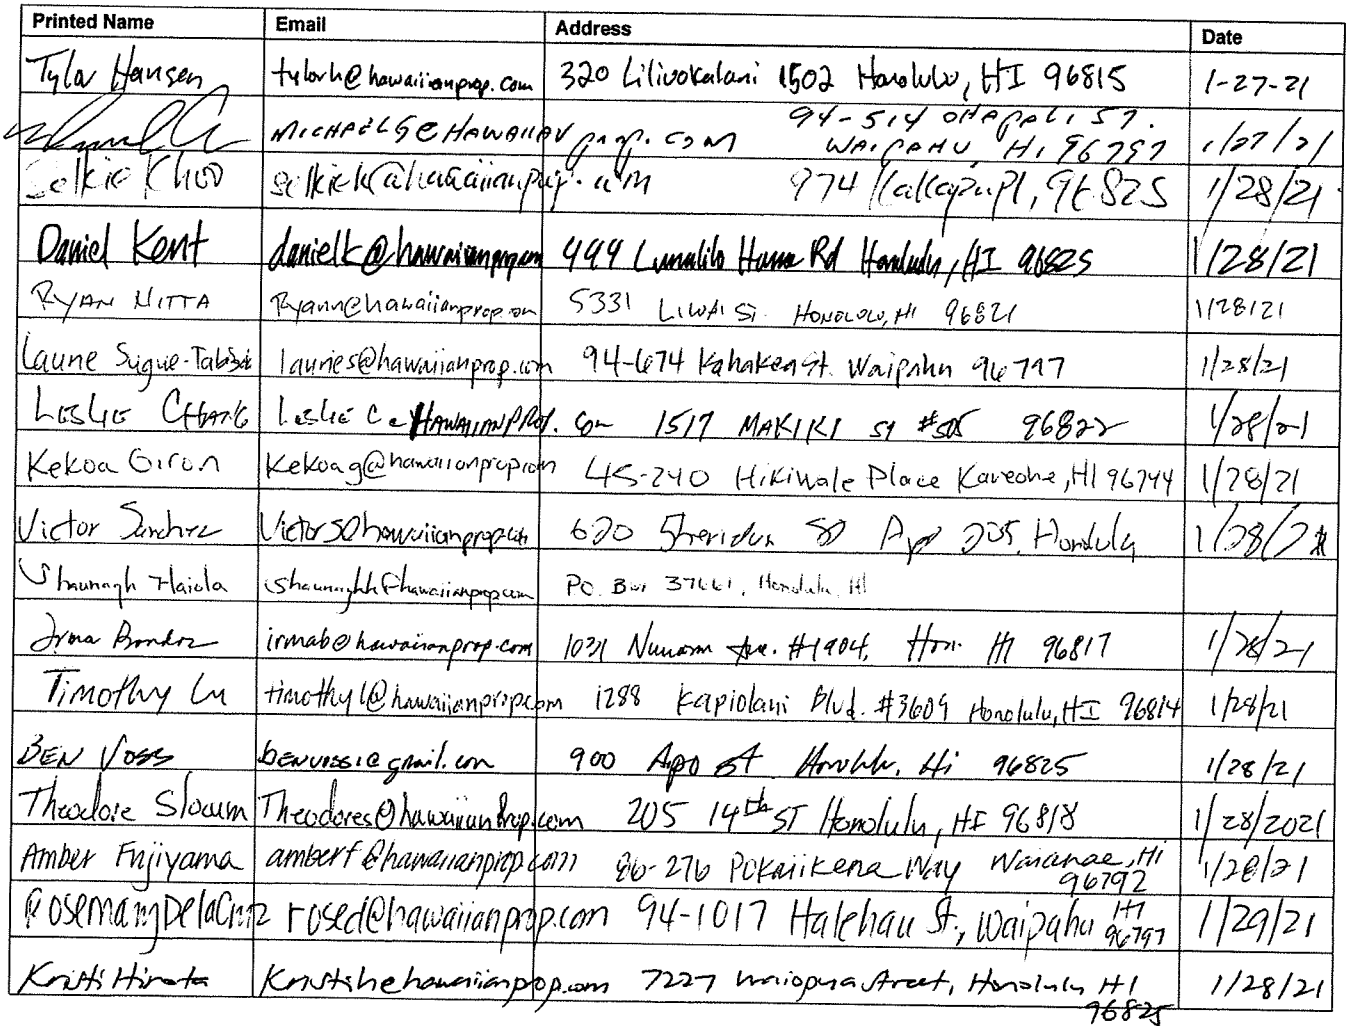 Printed Name Email Address Date
Tyler Hansen tylerh@hawaiianprop.com 320 Liliuokalani 1502 Honolulu, HI 96815 1-27-21
MICHAELG@HAWAIIANprop.com 94-514 WAIPAHU, HI 96797 1/27/21
Selkie Khoo selkiek@hawaiianprop.com 974 96825 1/28/21
Daniel Kent danielk@hawaiianprop.com 444 Lunalilo Home Rd Honolulu, HI 96825 1/28/21
RYAN NITTA Ryann@hawaiianprop.com 5331 LIWAI St. HONOLULU, HI 96821 1/28/21
Laurie Sugue- lauries@hawaiianprop.com 94-674 Kahakea St. Waipahu 96797 1/28/21
LESLIE CHANG LESLIE C@HAWAIIANPROP.com 1517 MAKIKI St #505 96822 1/28/21
Kekoa Giron Kekoag@hawaiianprop.com 45-240 Hikiwale Place Kaneohe, HI 96744 1/28/21
Victor Sanchez VictorS@hawaiianprop.com 620 Sheridan St Apt 205, Honolulu 1/28/21
Shaunagh Haiola shaunaghh@hawaiianprop.com PO. Box 37661, Honolulu, HI
Irma irmab@hawaiianprop.com 1031 Nuuanu Ave. #1904, Hon. HI 96817 1/28/21
Timothy Lu timothyl@hawaiianprop.com 1288 Kapiolani Blvd. #3609 Honolulu, HI 96814 1/28/21
BEN VOSS benvoss1@gmail.com 900 Apo St Honolulu, Hi 96825 1/28/21
Theodore Slocum Theodores@hawaiianProp.com 205 14th ST Honolulu, HI 96818 1/28/2021
Amber Fujiyama amberf@hawaiianprop.com 86-276 Pokaiikena Way Waianae, Hi 96792 1/28/21
Rosemary DelaCruz rosed@hawaiianprop.com 94-1017 Halehau St., Waipahu HI 96797 1/29/21
Kristi Hirota Kristih@hawaiianprop.com 7227 Street, Honolulu HI 96825 1/28/21